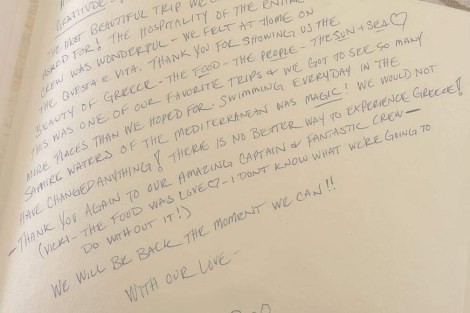 GRATITUDE
THE MOST BEAUTIFUL TRIP WE C
ASKED FOR! THE HOSPITALITY OF THE ENTIRE
CREW WAS WONDERFUL - WE FELT AT HOME ON
THE QUESTA E VITA. THANK YOU FOR SHOWING US THE
BEAUTY OF GREECE - THE FOOD - THE PEOPLE - THE SUN + SEA♡
THIS WAS ONE OF OUR FAVORITE TRIPS & WE GOT TO SEE SO MANY
MORE PLACES THAN WE HOPED FOR. SWIMMING EVERYDAY IN THE
SAPHIRE WATERS OF THE MEDITERRANEAN WAS MAGIC! WE WOULD NOT
HAVE CHANGED ANYTHING! THERE IS NO BETTER WAY TO EXPERIENCE GREECE!
- THANK YOU AGAIN TO OUR AMAZING CAPTAIN & FANTASTIC CREW -
(VICKI - THE FOOD WAS LOVE♡ - I DONT KNOW WHAT WE'RE GOING TO
DO WITHOUT IT!)
WE WILL BE BACK THE MOMENT WE CAN!!
WITH OUR LOVE -